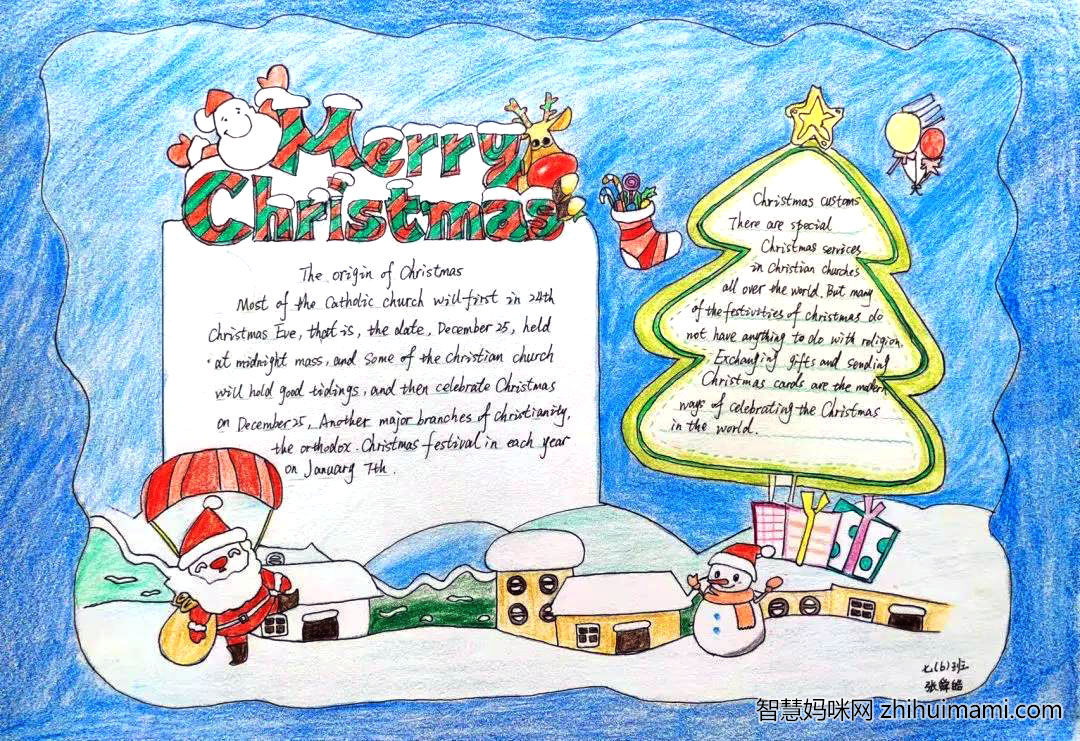 Merry
Christmas
The origin of Christmas
Most of the Catholic church will first in 24th
Christmas Eve, that is, the date, December 25, held
at midnight mass, and some of the christian church
will hold good tidings, and then celebrate Christmas
on December 25, Another major branches of christianity,
the orthodox. Christmas festival in each year
on January 7th.
Christmas customs
There are special
Christmas services
in Christian churches
all over the world. But many
of the festivities of christmas do
not have anything to do with religion.
Exchanging gifts and sending
Christmas cards are the modern
ways of celebrating the Christmas
in the world.
七(6)班
张舜皓
智慧妈咪网 zhihuimami.com